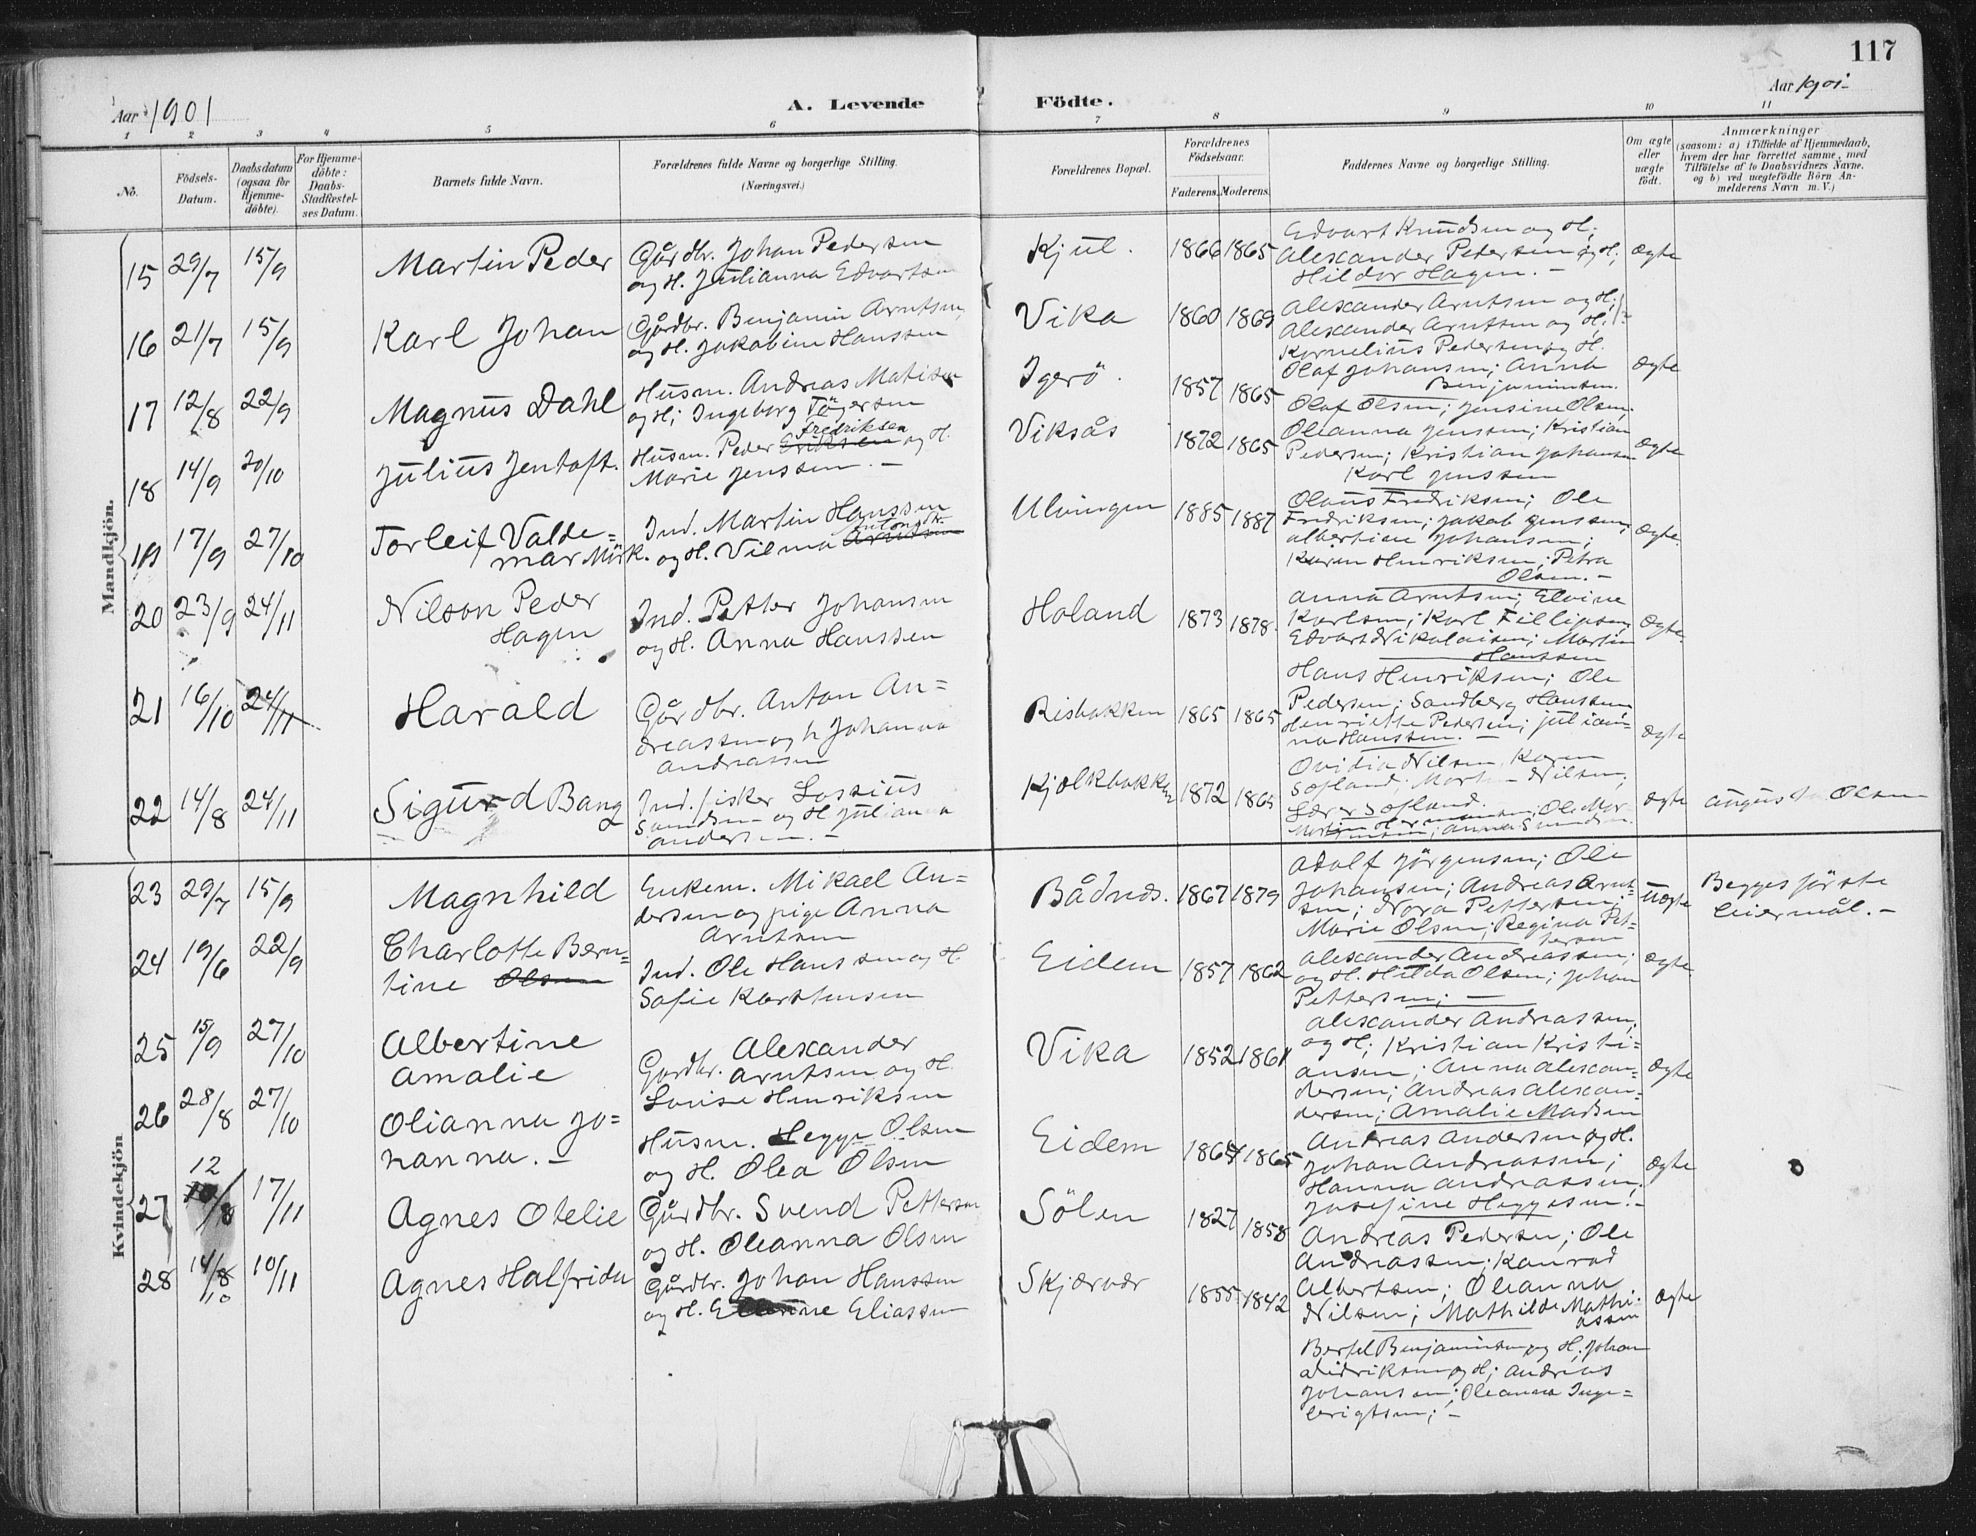 117
Aar 1901
A. Levende Födte.
Aar 1901
1 2 3 4 5 6 7 8 9 10 11
No.
Födsels-Datum.
Daabsdatum (ogsaa for Hjemme-döbte).
For Hjemme-döbte: Daabs-Stadfæstel-ses Datum.
Barnets fulde Navn.
Forældrenes fulde Navne og borgerlige Stilling.
(Næringsvei.)
Forældrenes Bopæl.
Forældrenes Födselsaar.
Faderens. Moderens.
Faddernes Navne og borgerlige Stilling.
Om ægte eller uægte födt.
Anmærkninger
(saasom: a) i Tilfælde af Hjemmedaab,
hvem der har forrettet samme, med
Tilföielse af to Daabsvidners Navne,
og b) ved uægtefödte Börn An-
melderens Navn m. V.)
Mandkjön.
15 29/7 15/9 Martin Peder
Gårdbr. Johan Pedersen
og H. Julianna Edvartsen
Kjul. 1866 1865
Edvart Knudsen og H;
Alexander Pedersen og H;
Hildor Hagen. –
Ægte
16 21/7 15/9 Karl Johan
Gårdbr. Benjamin Arntsen
og H. Jakobine Hanssen
Vika 1860 1869
Alexander Arntsen og H;
Alexander Arntsen og H;
Kornelius Pedersen og H.
17 12/8 22/9 Magnus Dahl
Husm. Andreas Matisen
og H; Ingeborg Tögersen
Igerö. 1857 1865
Olaf Johansen; Anna
Benjaminsen.
Olaf Olsen; Jensine Olsen.
Ægte
18 14/9 20/10 Julius Jentoft.
Husm. Peder Eriksen og H.
Fredriksen
Marie Jenssen. –
Viksås 1872 1865
Oleanna Jenssen; Kristian
Pedersen; Kristian Johansen
Karl Jenssen
Ægte
19 17/9 27/10 Torleif Valde=
mar Mörk.
Ind. Martin Hanssen
og H. Vilma Arntsen
Ulvingen 1885 1887
Olaus Fredriksen; Ole
Fredriksen; Jakob Jenssen;
Albertine Johansen;
Karen Henriksen; Petra
Olsen. –
Ægte.
20 23/9 24/11 Nilson Peder
Hagen
Ind. Petter Johansen
og H. Anna Hanssen
Holand 1873 1878.
Anna Arntsen; Elvine
Karlsen; Karl Fillipsen;
Edvart Nikolaisen; Martin
Hanssen
Ægte.
21 16/10 24/11 Harald
Gårdbr. Anton An=
dreassen og H Johanna
Andreassen
Risbakken 1865 1865
Hans Henriksen; Ole
Pedersen; Sandberg Hanssen
Henriette Pedersen; Julian-
na Hanssen. –
Ægte
22 14/8 24/11 Sigurd Bang
Ind. fisker Lossius
og H Julianna
Andersen. –
Kjolkbakken 1872 1865
Ovidia Nilsen, Karen
Sofland; Morten Nilsen;
Lærer Sofland.
Ægte
August Olsen
Kvindekjön
23 29/7 15/9 Magnhild
Enkem. Mikael An=
dersen og pige Anna
Arntsen
Bådnds. 1867 1879
Adolf Jörgensen; Ole
Johansen; Andreas Arnt-
sen; Nora Pettersen;
Marie Olsen; Regina Pet-
tersen
Uægte
Begges förste
leiermål. –
24 19/6 22/9 Charlotte Bern=
tine Olsen
Ind. Ole Hanssen og H.
Sofie Karstensen
Eidem 1857 1862
Alexander Andreassen;
og H. Hilda Olsen; Johan
Pettersen; –
Ægte
25 15/9 27/10 Albertine
Amalie
Gårdbr. Alexander
Arntsen og H.
Lovise Henriksen
Vika 1852 1861
Alexander Andreassen;
og H; Kristian Kristi=
ansen; Anna Alexan=
dersen; Andreas Alexan=
dersen; Amalie Madsen
Ægte
26 28/8 27/10 Olianna Jo=
hanna. –
Husm. Hegge Olsen
og H. Olea Olsen
Eidem 1865
Andreas Andersen og H.
Johan Andreassen;
Hanna Andreassen;
Josefine Heggesen. –
Ægte
27 12/8 17/11 Agnes Otelie
Gårdbr. Svend Pettersen
og H. Oleanna Olsen
Sölen 1827 1858
Andreas Pedersen; Ole
Andreassen; Konrad
Albertsen; Oleanna
Nilsen; Mathilde Mathi-
assen
28 14/10 10/11 Agnes Halfrida
Gårdbr. Johan Hanssen
og H. Eliassen
Skjærvær 1855 1842
Ægte
Bertel Benjaminsen og H; Johan
Didriksen og H; Andreas
Johansen; Oleanna Inge=
brigtsen; –